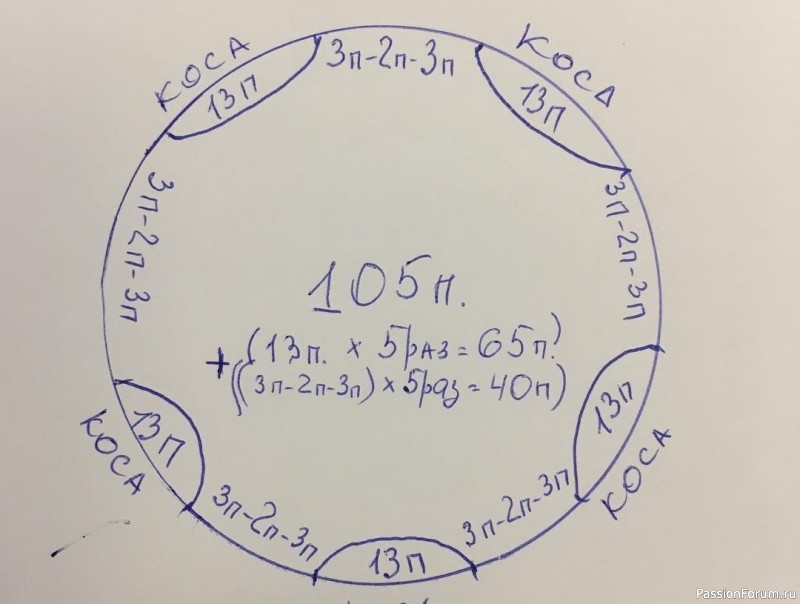 КОСА
13п
3п-2п-3п
КОСА
13п
3п-2п-3п
3п-2п-3п
105п.
(13п. x 5раз=65п.)
+((3п-2п-3п)x5раз=40п)
13п
КОСА
13п
КОСА
3п-2п-3п
3п-2п-3п
13п
PassionForum.ru